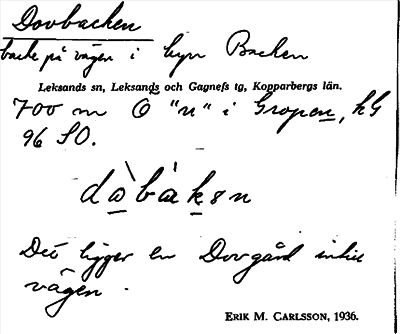 Dovbacken
backe på vägen i byn Backen
Leksands sn, Leksands och Gagnefs tg, Kopparbergs län.
700 m Ö "n" i Gropen, hG
96 SO.
dòbàkən
Det ligger en Dovgård intill
vägen.
ERIK M. CARLSSON, 1936.